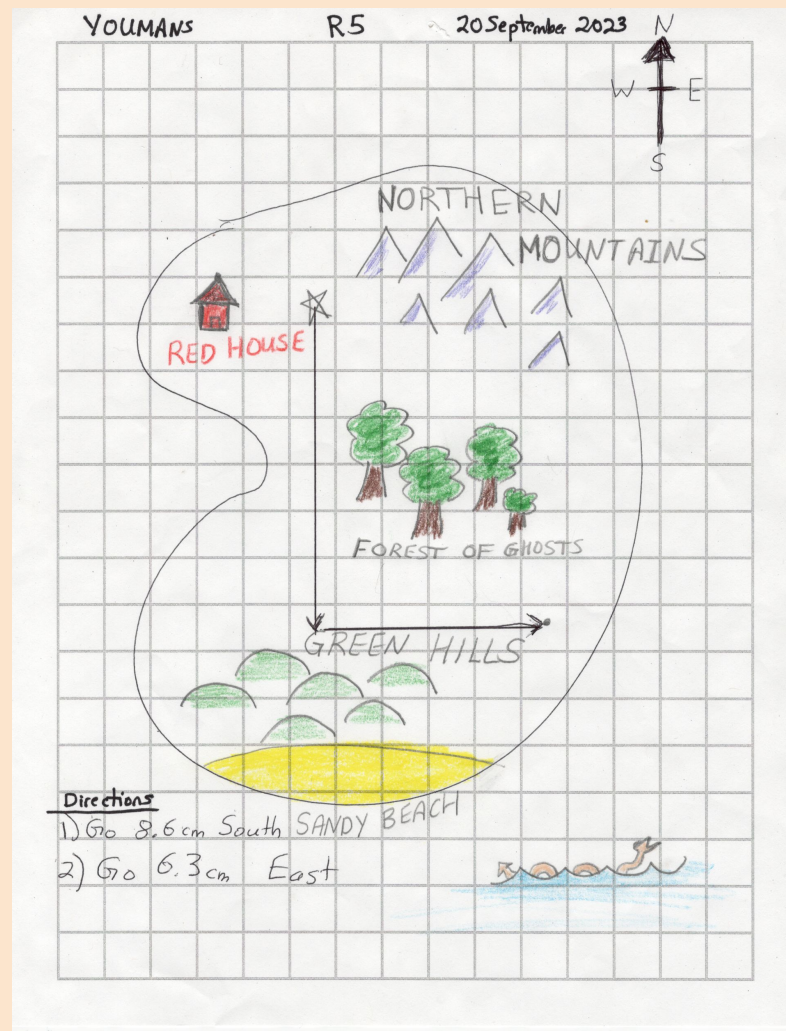 YOUMANS R5 20 September 2023
N
W E
S
NORTHERN
MOUNTAINS
RED HOUSE
FOREST OF GHOSTS
GREEN HILLS
Directions
1) Go 8.6cm South SANDY BEACH
2) Go 6.3cm East